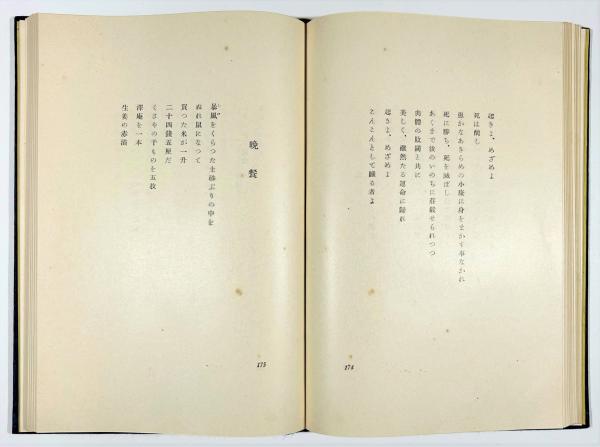 起きよ、めざめよ
死は醜し
愚かなあきらめの小に身をまかす事なかれ
死に勝ち、死を滅ぼし
あくまで汝のいのちに莊嚴せられつつ
肉體のと共に
美しく、然たる運命に歸れ
起きよ、めざめよ
こんこんとして眠る者よ
174
晩餐
暴風をくらつた土砂ぶりの中を
ぬれ鼠になつて
買つた米が一升
二十四錢五厘だ
くさやの干ものを五枚
澤庵を一本
生姜の赤漬
175